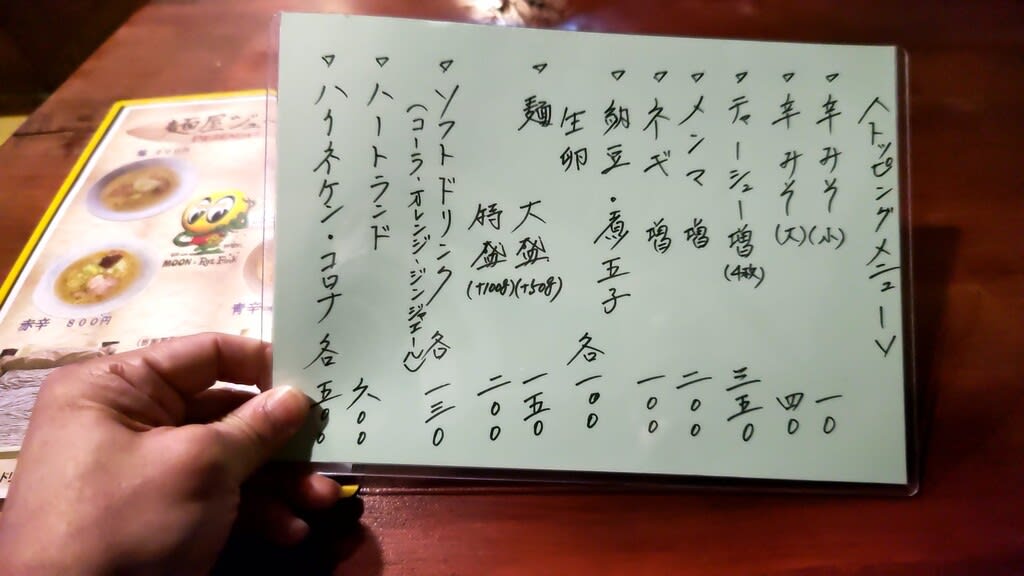 <トッピングメニュー>
▽辛みそ(小) 一0
▽辛みそ(大) 四0
▽チャーシュー増(4枚) 三五0
▽メンマ増 二00
▽ネギ増 一00
▽納豆・煮玉子
生卵 各一00
▽麺 大盛(+50g) 一五0
特盛(+100g) 二00
▽ソフトドリンク 各一三0
(コーラ・オレンジ・ジンジャエール)
▽ハートランド 六00
▽ハイネケン・コロナ 各五00
麺屋ジ
MOON
赤辛 800円
青辛